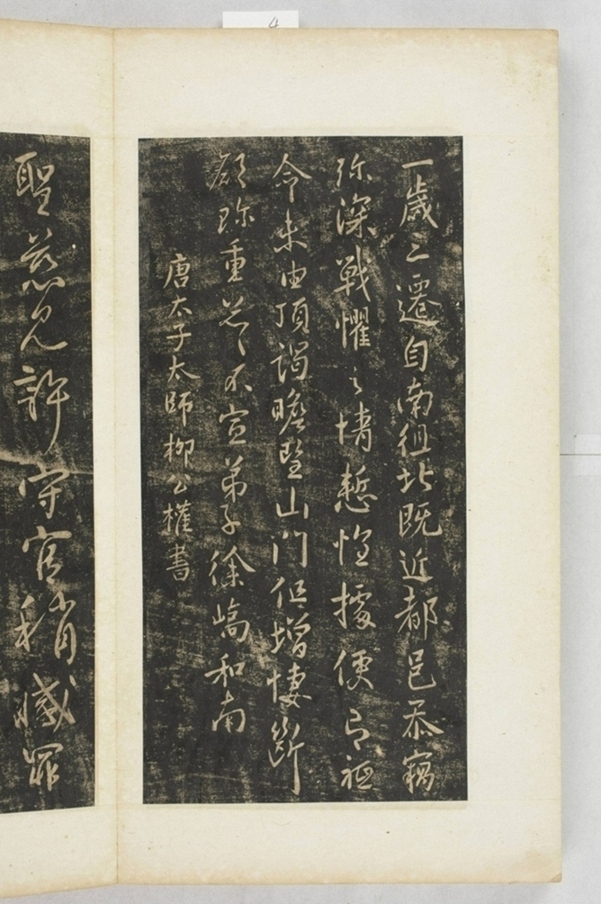 一歲三遷自南徂北既近都邑忝竊
弥深戰懼之情慙惶據便祗
命未由頂謁瞻望山門但增悽斷
願珎重之不宣弟子徐嶠和南
唐太子太師柳公權書
聖慈允許守官稍減罪
4